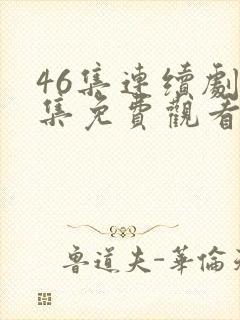 46集連續劇
集免費觀看
魯道夫-華倫